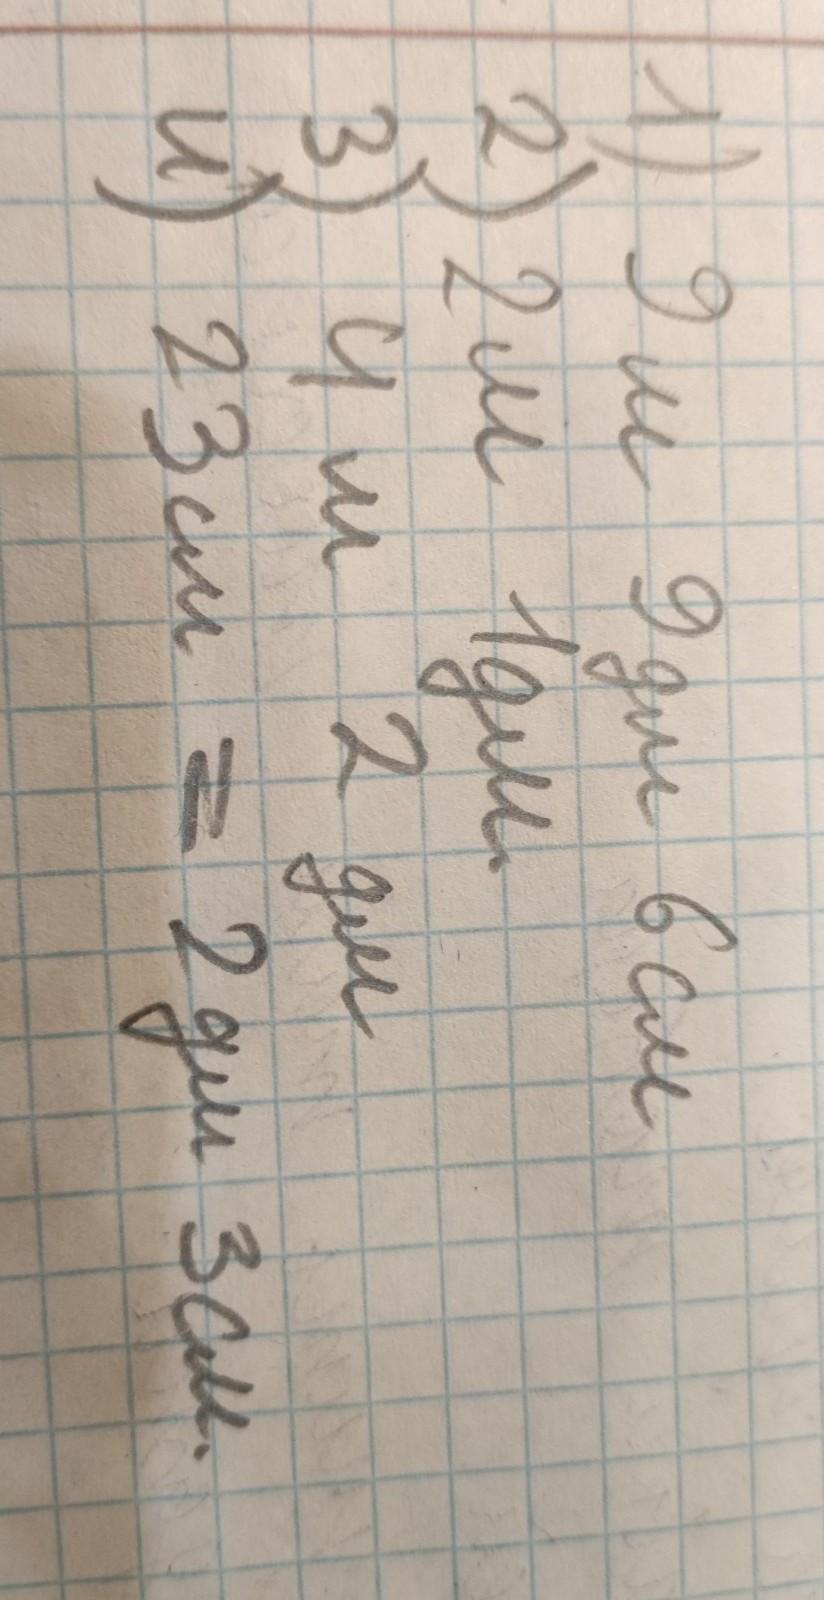 1) 9 м 9 дм 6 см
2) 2 м 1 дм.
3) 4 м 2 дм
4) 23 см = 2 дм 3 см.